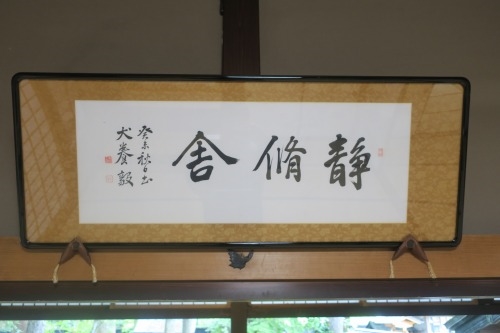 静脩舎
癸未秋日書
犬養毅